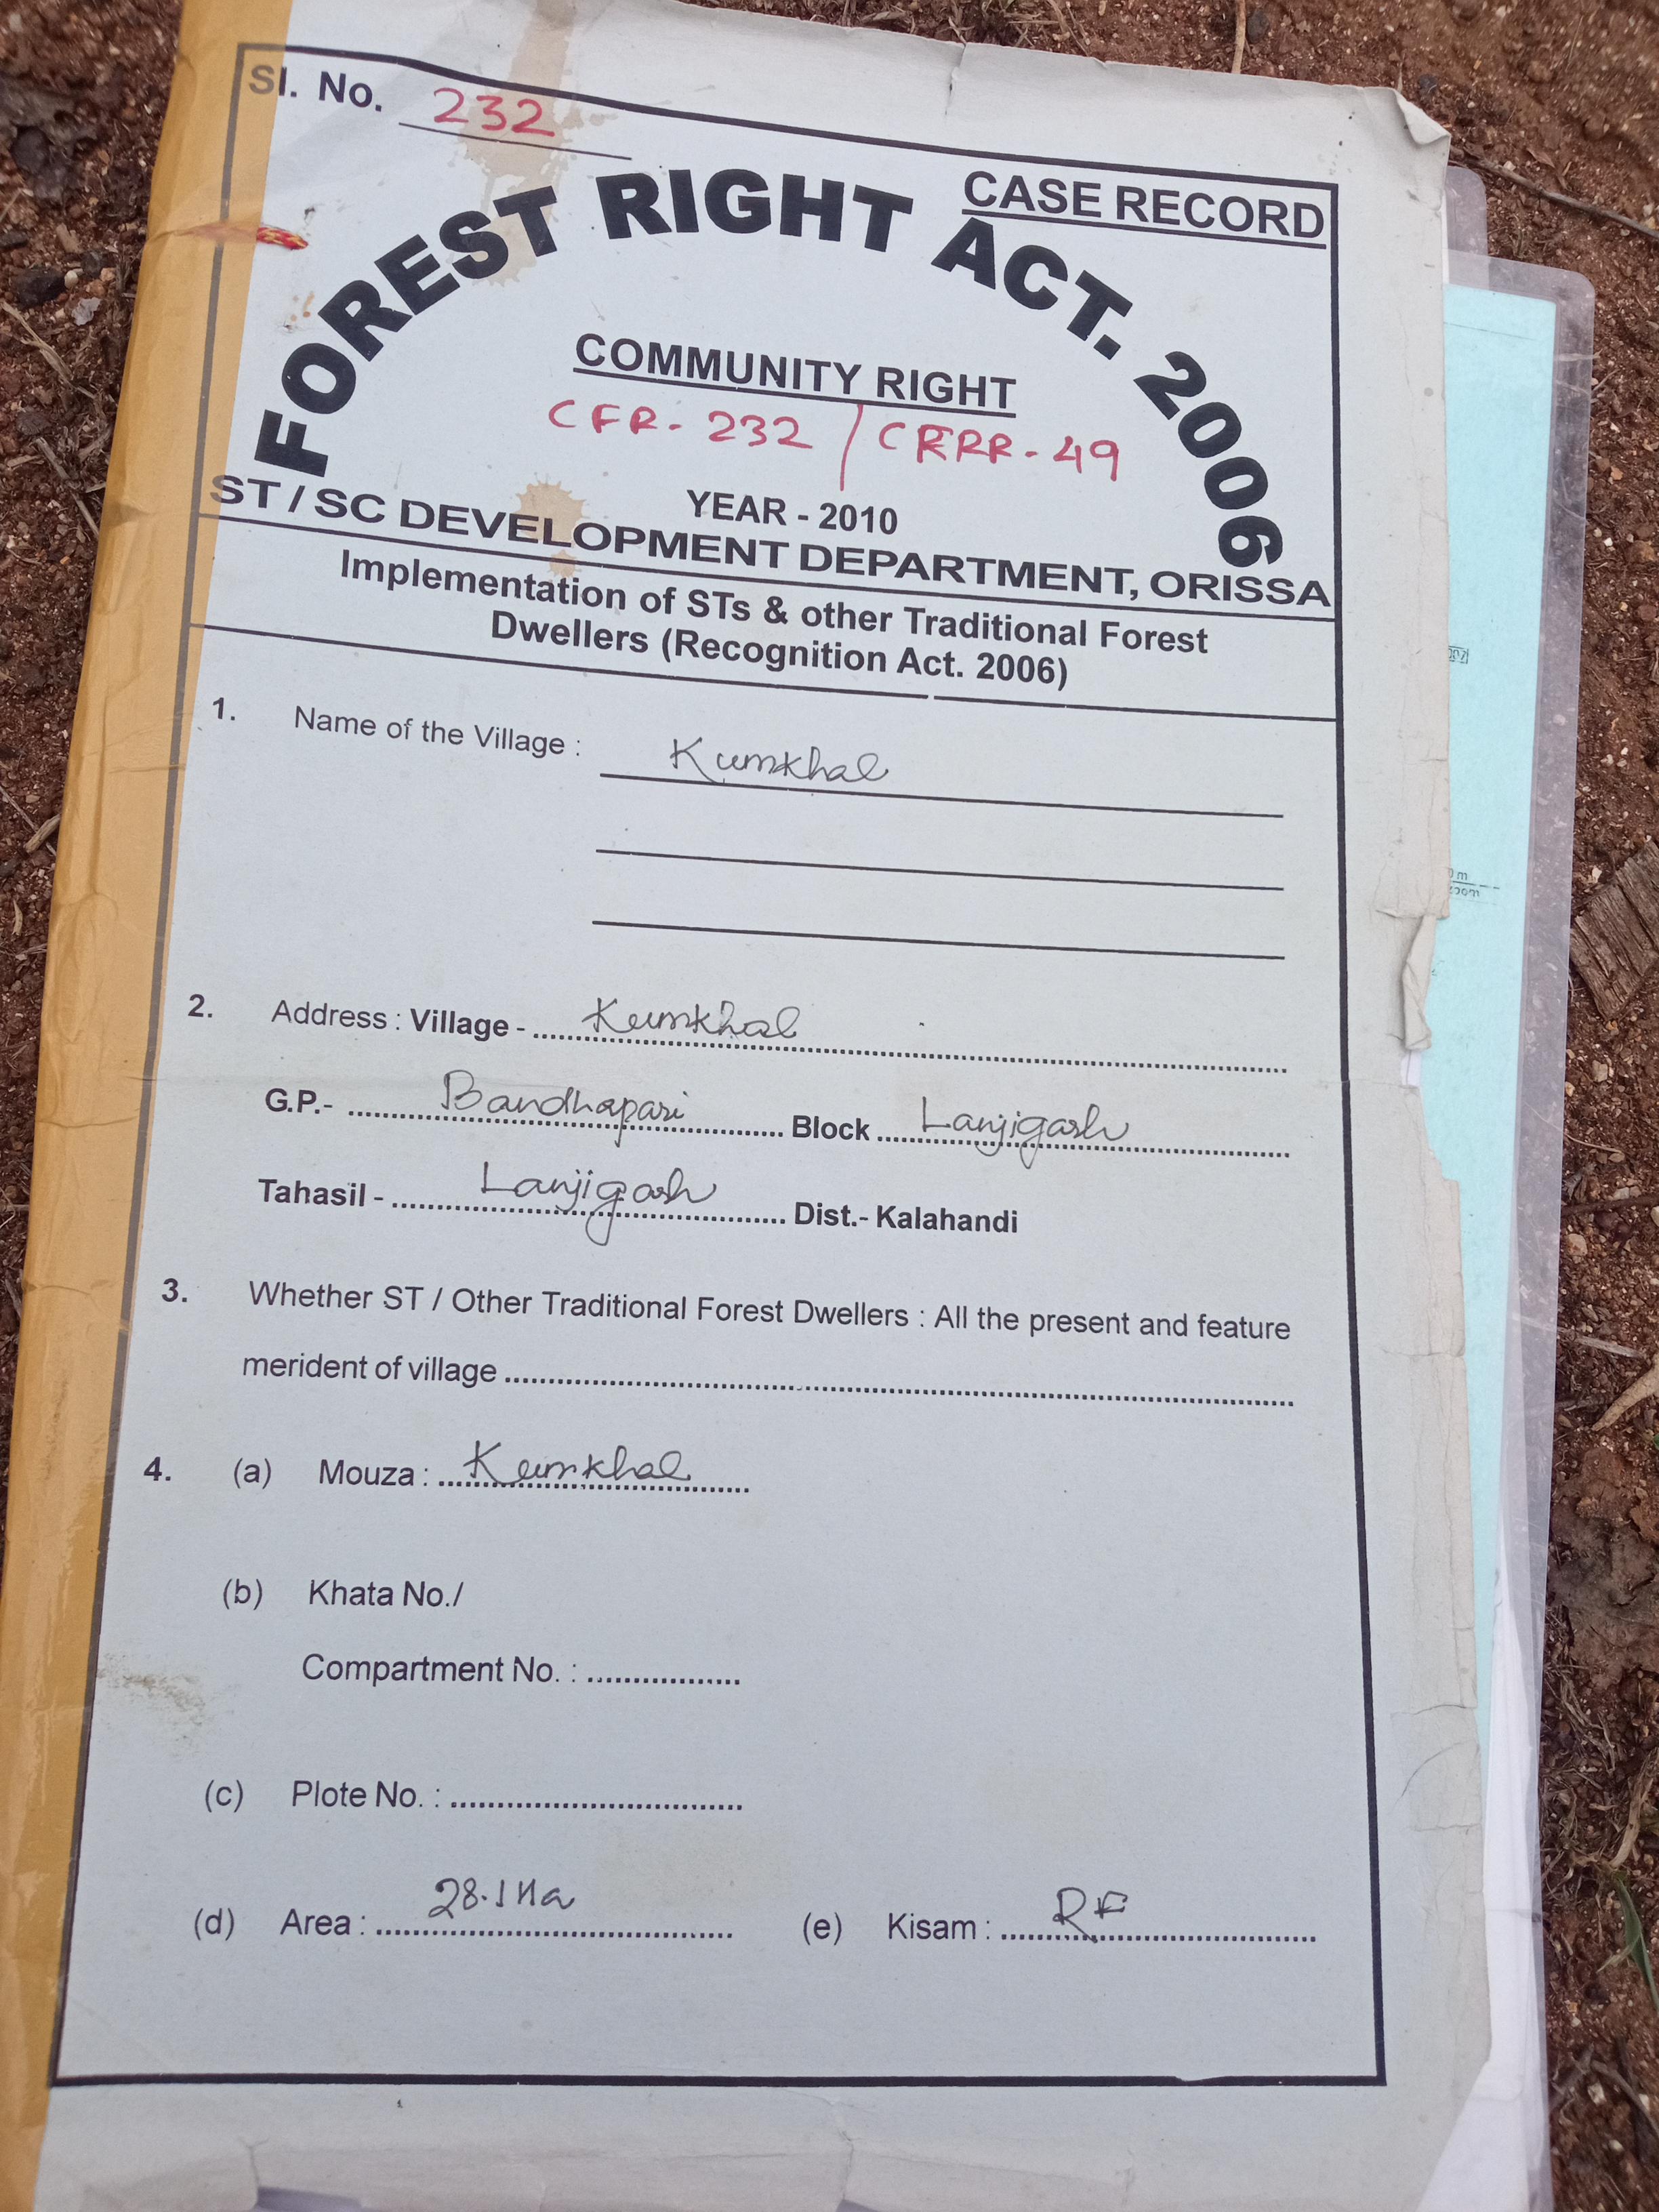 Sl. No. 232
CASE RECORD
FOREST RIGHT ACT. 2006
COMMUNITY RIGHT
CFR- 232 / CFRR-49
YEAR - 2010
ST / SC DEVELOPMENT DEPARTMENT, ORISSA
Implementation of STs & other Traditional Forest
Dwellers (Recognition Act. 2006)
1. Name of the Village : Kumkhal
2. Address : Village - Kumkhal
G.P.- Bandhapari Block Lanjigarh
Tahasil - Lanjigarh Dist.- Kalahandi
3. Whether ST / Other Traditional Forest Dwellers : All the present and feature
merident of village
4. (a) Mouza : Kumkhal
(b) Khata No./
Compartment No. :
(c) Plote No. :
(d) Area : 28.1 Ha (e) Kisam : RF